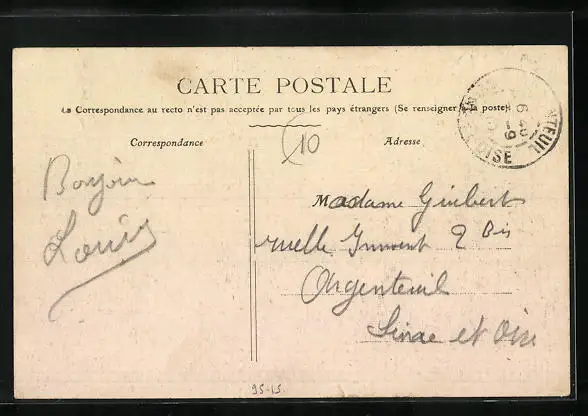 CARTE POSTALE
La Correspondance au recto n'est pas acceptée par tous les pays étrangers (Se renseigner à la poste)
Correspondance
10
Adresse
Bonjour
Louis
Madame Guibert
ruelle 2 Bis
Argenteuil
Seine et Oise
OISE
95-15